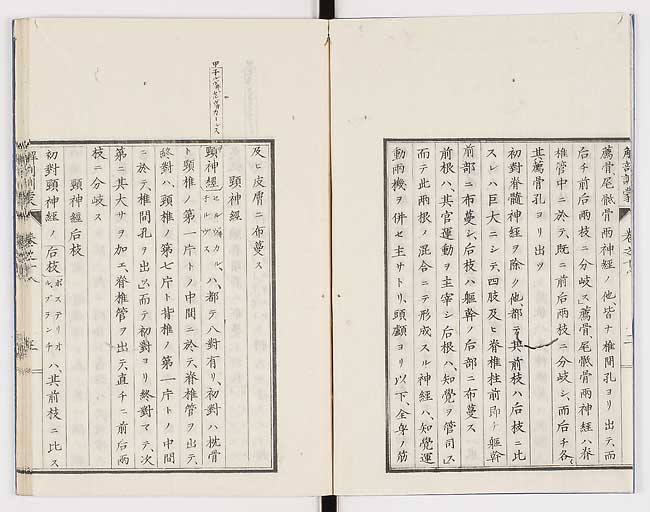 薦骨、尾骶骨兩神経ノ他、皆ナ椎間孔ヨリ出テ、而
后チ前后兩枝ニ分岐ス」薦骨、尾骶骨兩神経ハ脊
椎管中ニ於テ、既ニ前后兩枝ニ分岐シ、而后チ各
其薦骨孔ヨリ出ツ
初對脊髓神経ヲ除ク他、都テ其前枝ハ后枝ニ比
スレハ巨大ニシテ、四肢及ヒ脊椎柱前即チ軀幹
前部ニ布蔓シ、后枝ハ軀幹ノ后部ニ布蔓ス
前根ハ、其官運動ヲ主宰シ、后根ハ、知覺ヲ管司ス」
而テ此兩根ノ混合ニテ形成スル神経ハ、知覺運
動兩機ヲ併セ主サトリ、頭顱ヨリ以下、全身ノ筋
解剖訓蒙
及ヒ皮膚ニ布蔓ス
頸神経
頸神経 セルヴィカル、子ルヴス ハ、都テ八對有リ、初對ハ枕骨
ト頸椎ノ第一片トノ中間ニ於テ、脊椎管ヲ出テ、
終對ハ、頸椎ノ第七片ト背椎ノ第一片トノ中間
ニ於テ、椎間孔ヲ出ス」而テ初對ヨリ終對マテ、次
第ニ其大サヲ加エ、脊椎管ヲ出テ、直チニ前后兩
枝ニ分岐ス
頸神経后枝
初對頸神経ノ后枝 ポステリオル、ブランチ ハ、其前枝ニ比ス